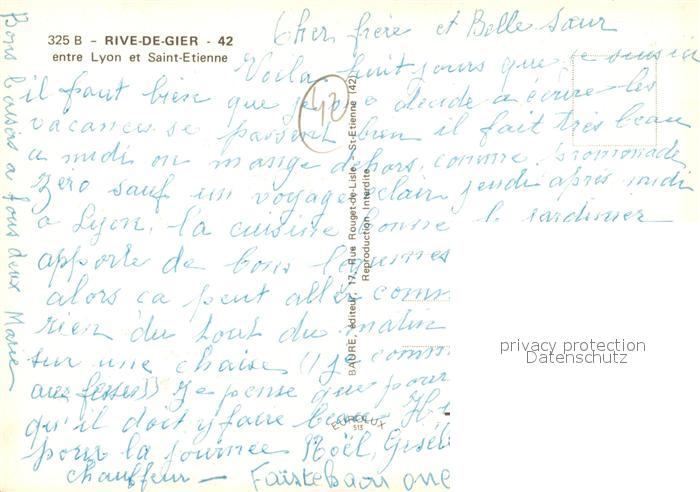 325 B - RIVE-DE-GIER - 42
entre Lyon et Saint-Etienne
Cher frère et Belle Sœur
Voila huit jours que je suis ici
il faut bien que je me decide a écrire les
vacances se passent bien il fait très beau
a midi on mange dehors, comme promenade
Zéro sauf un voyage éclair jeudi après midi
a Lyon, la cuisine bonne le jardinier
apporte de bons légumes
alors ca peut aller comm
rien du tout du matin
sur une chaise (je comm
aux fesses)) Je pense que pour
qu'il doit y faire beau H
pour la journée Noël, Gisèl
chauffeur —
Bons baisers a tous deux Marie
42
BAURE, éditeur, 17, Rue Rouget-de-Lisle - St-Etienne (42)
Reproduction Interdite
EUROLUX
513
privacy protection
Datenschutz